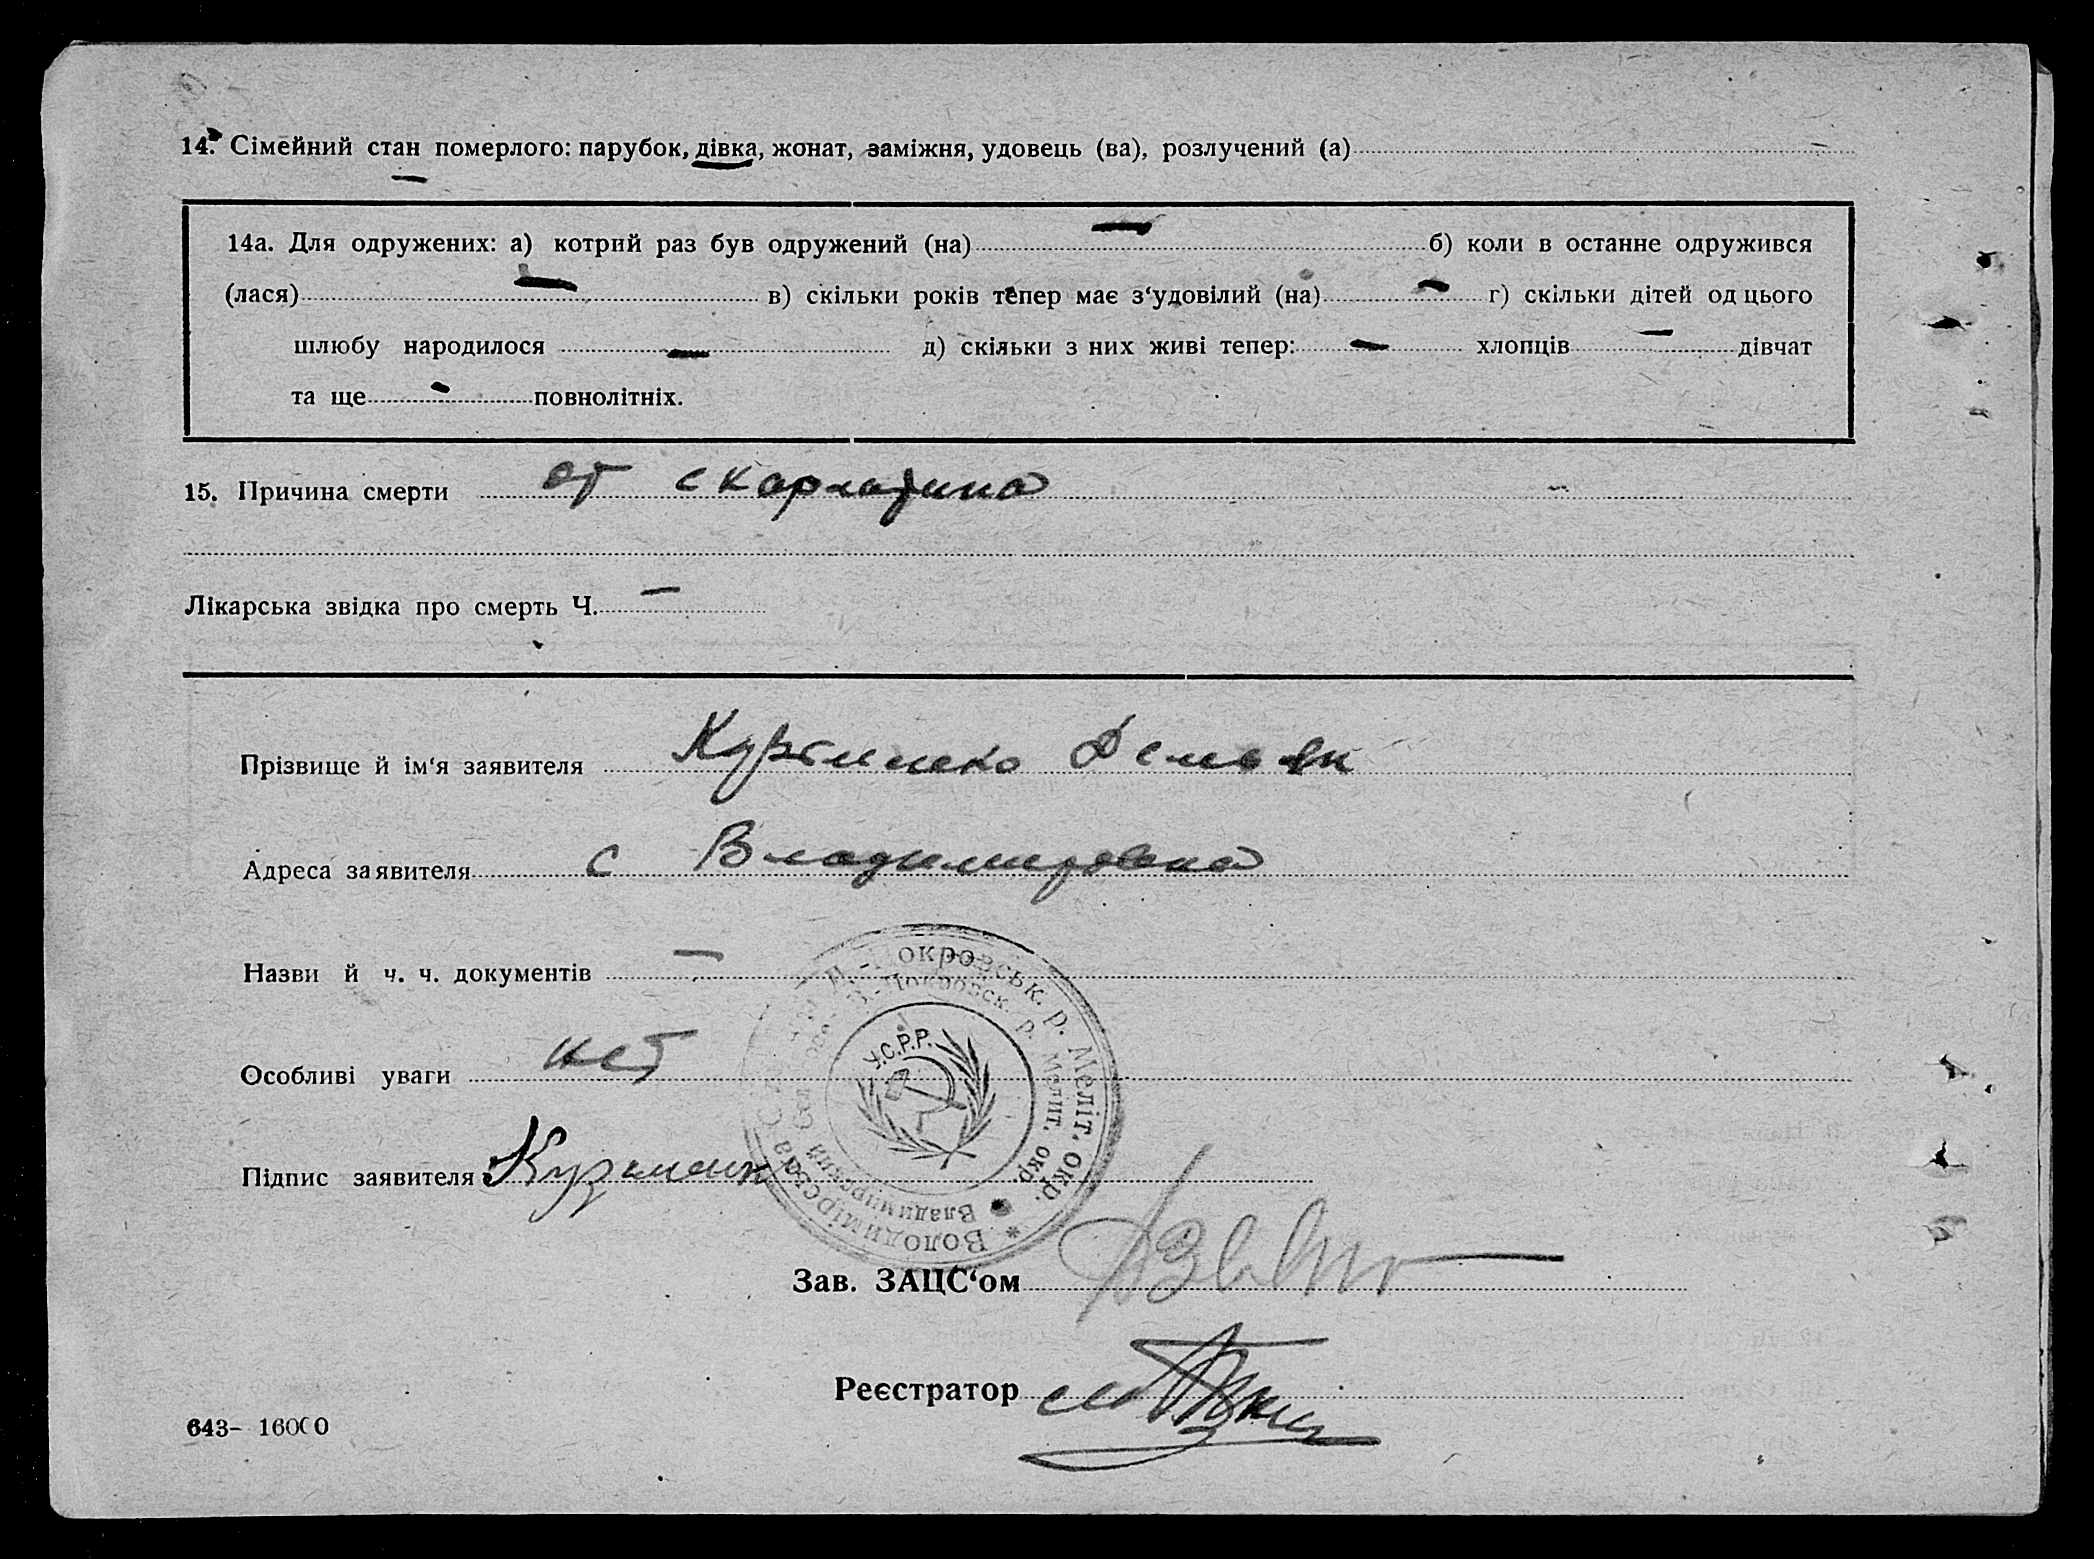 14. Сімейний стан померлого: парубок, дівка, жонат, заміжня, удовець (ва), розлучений (а)
14а. Для одружених: а) котрий раз був одружений (на) б) коли в останне одружився
(лася) в) скільки років тепер має з‘удовілий (на) г) скільки дітей од цього
шлюбу народилося д) скільки з них живі тепер: хлопців дівчат
та ще повнолітніх.
15. Причина смерти от скарлатина
Лікарська звідка про смерть Ч.
Прізвище й ім‘я заявителя Демьян
Адреса заявителя с Владимировка
Назви й ч. ч. документів
Особливі уваги нет
Підпис заявителя
Володимірська -Покровськ. р. Меліт. окр.
Владимирский -Покровск. р. Мелит. окр.
У.С.Р.Р.
Зав. ЗАЦС‘ом
Реєстратор
643– 16000